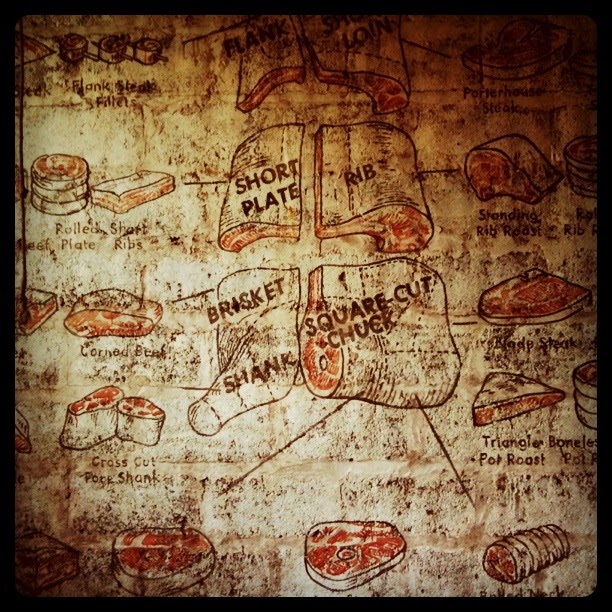 FLANK
SHORT
LOIN
Flank Steak
Fillets
Porterhouse
Steak
SHORT
PLATE
RIB
Rolled
Plate
Short
Ribs
Standing
Rib Roast
BRISKET
SQUARE-CUT
CHUCK
SHANK
Corned Beef
Blade Steak
Cross Cut
Fore Shank
Triangle
Pot Roast
Boneless
Rolled Neck